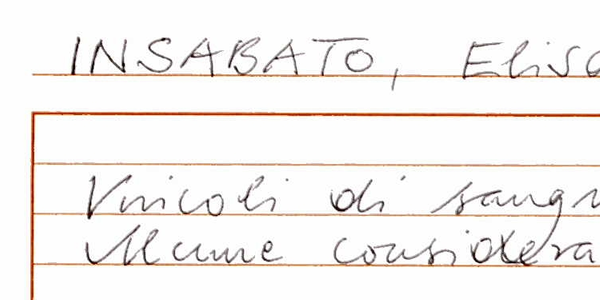 INSABATO, Elisa
Vincoli di sangu
Alcune considera